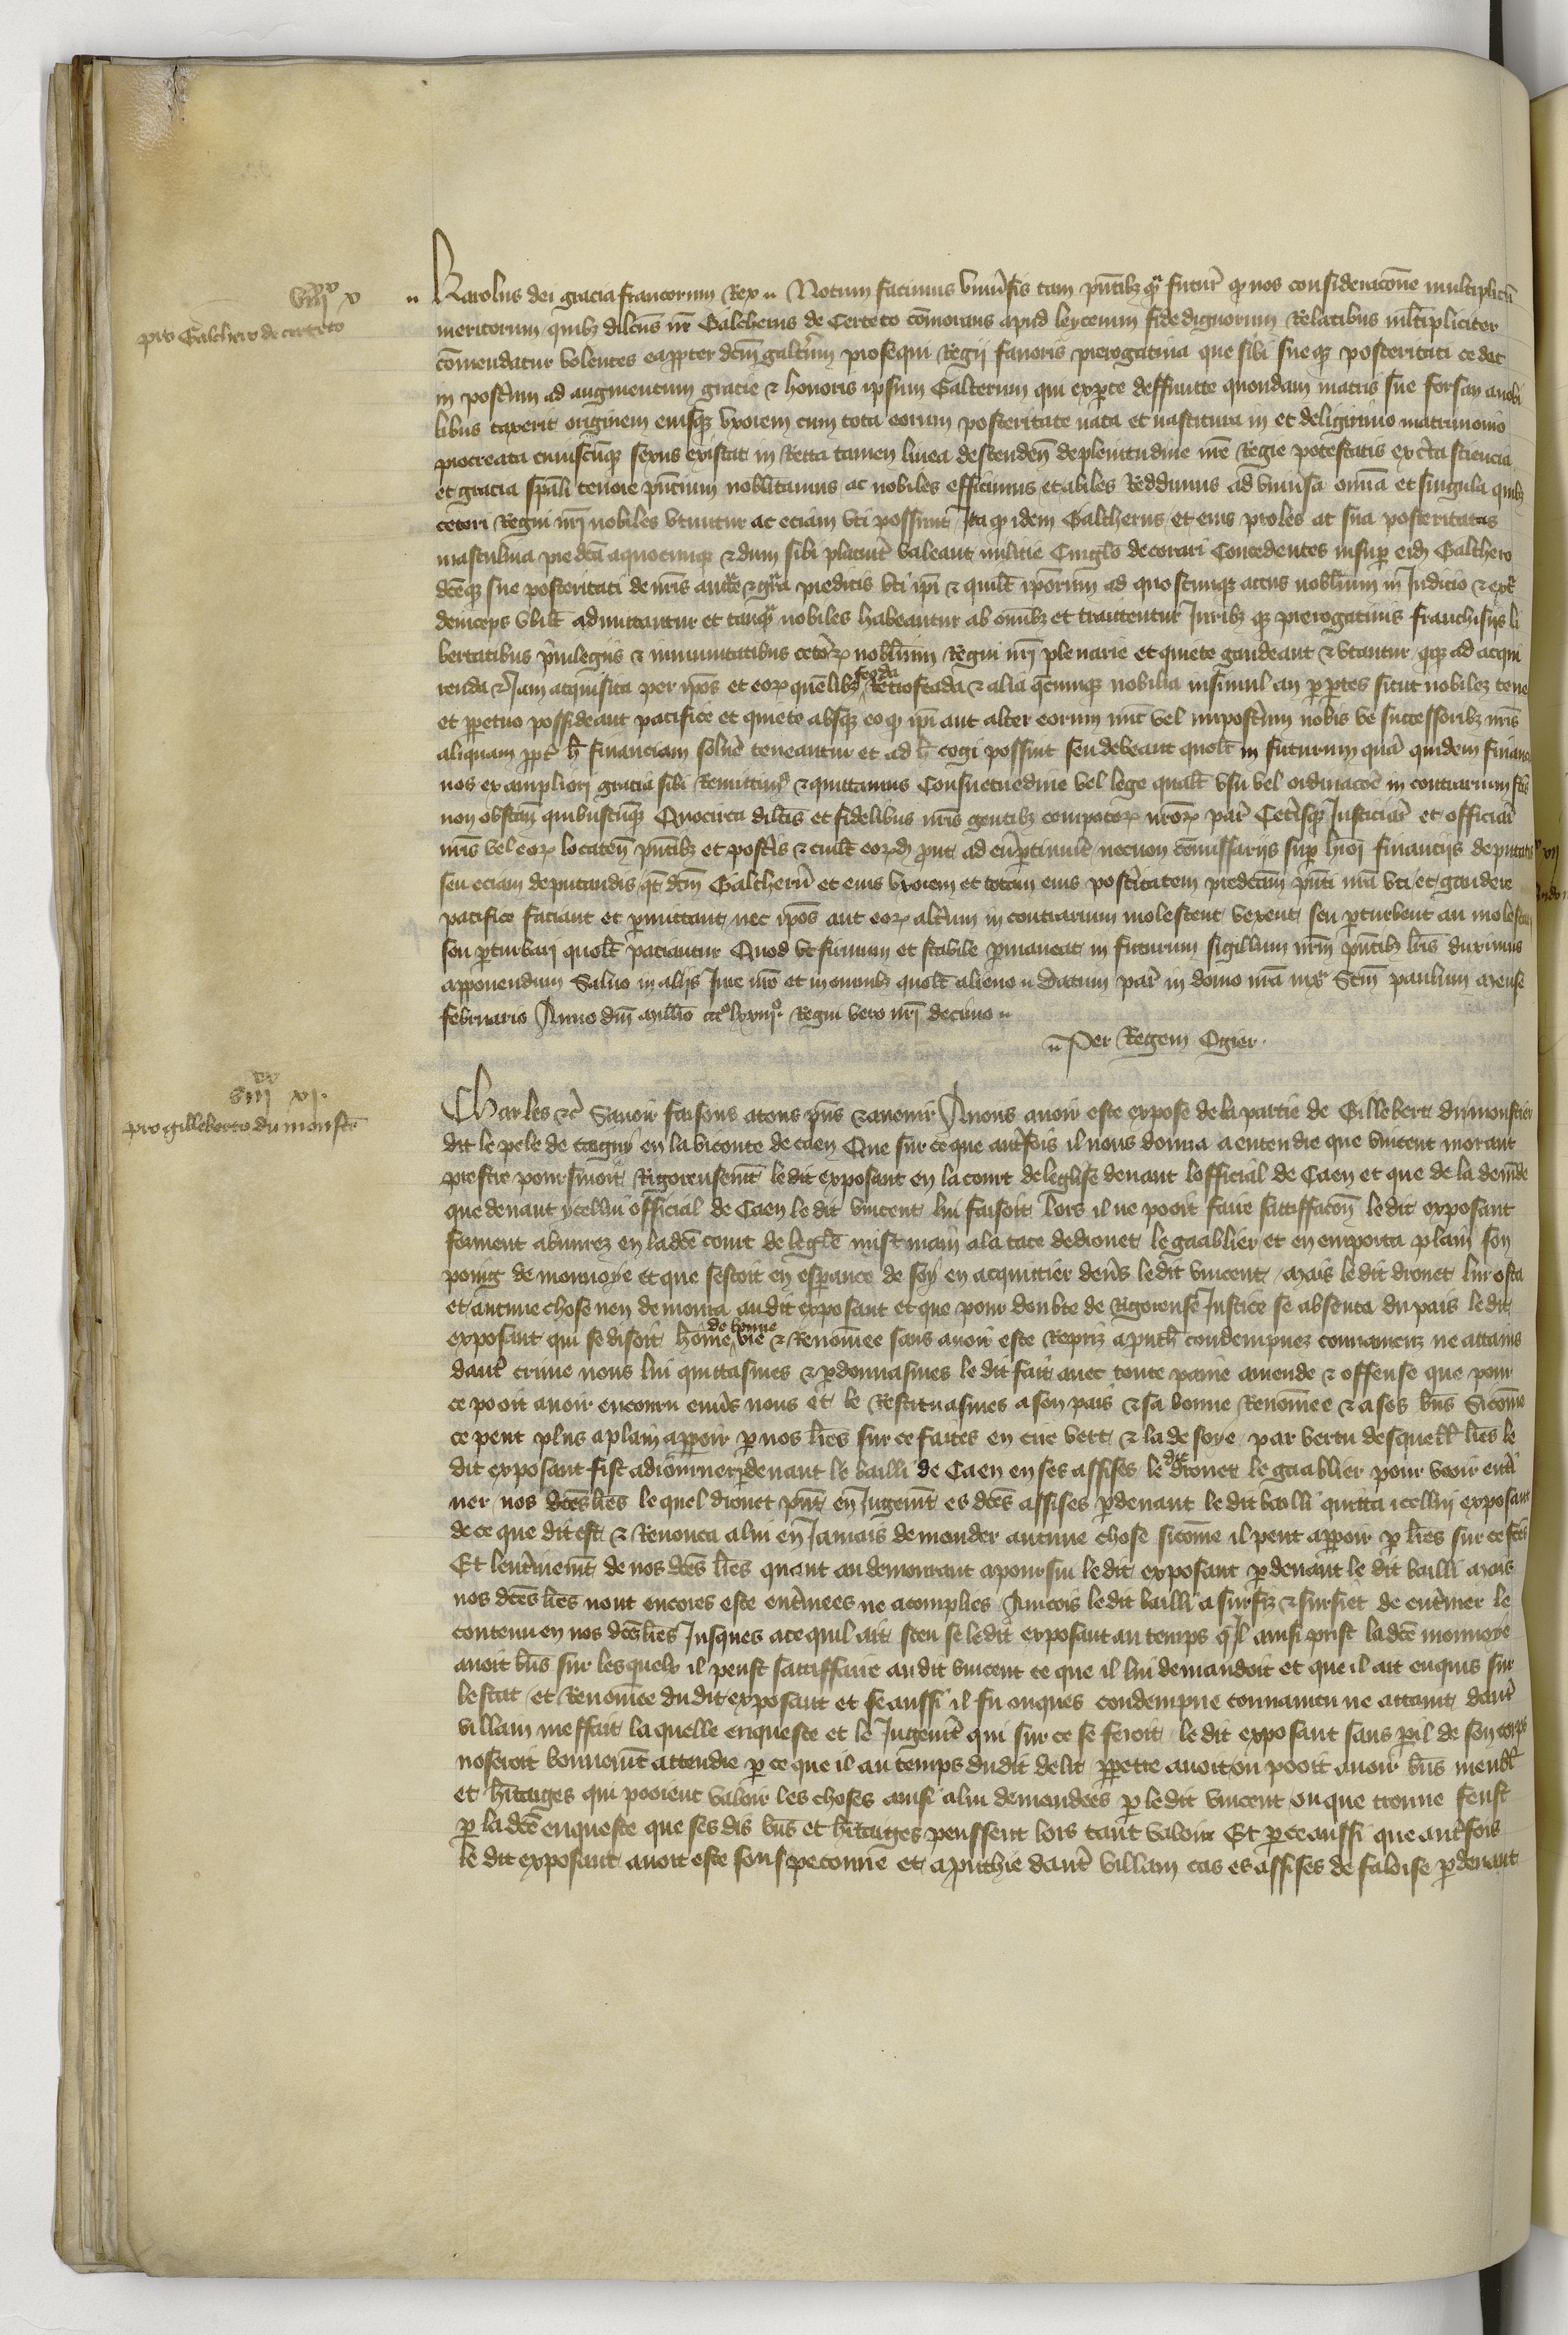 viiixx x
pro Galchero de certeto
Karolus dei gracia francorum Rex Notum facimus Univ̄sis tam pñtibȝ qᵃ futur̄ qȝ nos consideracōne multiplicū
meritorum quibȝ dilcūs nr̄ Galcherus de Certeto cōmorans apud leycenum fidedignorum Relatibus ml̄tipliciter
cōmendatur volentes eappter dcm̄ galtr̄um prosequi Regij favoris prerogativa que sibi sueqȝ posteritati cedat
in post̄um ad augmentum gracie & honoris ipsum Galterum qui exp̄te deffuncte quondam matris sue forsan anobi
libus traxerit originem eiusqȝ uxorem cum tota eorum posteritate nata et nascitura in et deligitimo matrimonio
procreata cuiuscūqȝ sexus existat in Recta tamen linea descenden̄ deplenitudine nr̄e Regie potestatis excͬta sciencia
et gracia spāli tenore pn̄cium nobl̄itamus ac nobiles efficimus et abiles Reddimus ad univ̄sa om̄ia et singula quibȝ
ceteri Regni nr̄i nobiles utuntur ac eciam uti possunt Ita qȝ idem Galcherus et eius proles ac sua posteritatas
masculina predcā aquocunqȝ & dum sibi placuit̄ valeant milicie Cinglo decorari Concedentes insup̄ eidȝ Galchero
dcēqȝ sue posteritati de nr̄is auctͬe & grā predictis uti ipī & quil̄t ipōrum ad quoscunqȝ actus nobl̄ium in Judicio & extͣ
deinceps ubil̄t admittantur et tanqᵃ nobiles habeantur ab om̄ibȝ et tractentur Juribȝ qȝ prerogativis franchisijs li
bertatibus p̄vilegiis & immunitatibus ceto᷑ꝝ nobl̄ium Regni nr̄i plenarie et quiete gaudeant & utantur qqȝ ad acqui
renda & Jam acquisita per ipōs et eoꝝ quēlibȝ feoda Retrofeoda & alia qc̄umqȝ nobilia insimul an p̄ p̄tes sicut nobiles tene
et ppetuo possideant pacifice et quiete absqȝ eo qȝ ipī aut alter eorum nūc vel impost̄um nobis ve successoribȝ nr̄is
aliquam ppt̄ h̄ financiam solvē teneantur et ad h̄ cogi possint seu debeant quol̄t in futurum quā quidem finan
nos ex ampliori gracia sibi Remittimȝ & quittamus Consuetuedine vel lege qual̄t usu vel ordinacōe in contrarium fcīs
non obstan̄ quibuscūqȝ Quocirca dilcīs et fidelibus nr̄is gentibȝ compotoꝝ nr̄oꝝ par̄ Cetīsqȝ Justiciar̄ et officiar̄
nr̄is vel eoꝝ locaten̄ pn̄tibȝ et post̄is & cuil̄t eoꝝdȝ prout ad eū p̄tinuīt necnon cōmissarijs sup̄ hmōi financijs deputatis
seu eciam deputandis qt̄ dcm̄ Galcherū et eius uxorem et totam eius post̄itatem predcām pn̄ti nr̄a uti et gaudere
pacifice faciant et p̄mittant nec ipōs aut eoꝝ alt̄um in contrarium molestent vexent seu p̄turbent an molestari
seu p̄turbari quol̄t paciantur Quod ut firmum et stabile p̄maneat in futurum sigillum nr̄m pn̄tibȝ lr̄is duximus
apponendum Salvo in alijs Jure nr̄o et in omnibȝ quol̄t alieno Datum par̄ in domo nr̄a iuxͣ Sctm̄ paulum mense
februario Anno dn̄i mill̄io cccº lxxiijº Regni vero nr̄i decimo
Per Regem Ogier.
viiixx xi.
pro gilleberto du monst̄
Charles &c̄ Savoir faisons atous pn̄s & avenir Avons avoir este expose de la partie de Gillebert du monstier
dit le pele de cagny en la viconte de caen Que sur ce que autͬfois il nous donna a entendre que vincent morant
prestre poursuioit Rigoreusemn̄t le dit exposant en la court de leglise devant lofficial de Caen et que de la demāde
que devant ycellui official de Caen le dit vincent lui faisoit lors il ne pooit faire sattiffacōn le dit exposant
forment abuvrez en ladcē court de leglīse mist main ala tace dedrouet le gaablier et en emporta plain son
poing de monnoye et que sestoit en esp̄ance de soy en acquittier deūs le dit vincent mais le dit drouet lui osta
et aucune chose nen demoura audit exposant et que pour doubte de Rigoreuse Justice se absenta du pais le dit
exposant qui se disoit hōme de bonne vie & Renōmee sans avoir este Repriz apuch̄ condempnez convaincuz ne attains
dautͬ crime nous lui quittasmes & p̄donnasmes le dit fait avec toute paine amende & offense que pour
ce pooit avoir encouru eniūs nous et le Restituasmes a son pais & sa bonne Renōmee & a ses bn̄s Sicōme
ce peut plus aplain apparoir p̄ nos lr̄es sur ce faites en cire vert & laz de soye par vertu desquell̄ lr̄es le
dit exposant fist adiourner p̄devant le bailli de Caen en ses assises le dit drouet le gaablier pour veoir enteͬ
ner nos dcēs lr̄es lequel drouet pn̄t en Jugemn̄t es dcēs assises p̄devant le dit bailli quitta icellui exposant
de ce que dit est & Renonca alui en Jamais demander aucune chose sicōme il peut apparoir p̄ lr̄es sur ce fcēs
Et lenteͬinemn̄t de nos dcēs lr̄es quant au demourant apoursui le dit exposant p̄devant le dit bailli mais
nos dcēs lr̄es nont encores este enteͬinees ne acomplies Aincois le dit bailli a surfiz & surfiet de enteͬiner le
contenu en nos dcēs lr̄es Jusques ace quil ait sceu se ledit exposant au temps qͥl ainsi prist ladcē monnoye
avoit bn̄s sur lesquelx il peust sattiffaire au dit vincent ce que il lui demandoit et que il ait enquis sur
lestat et Renōmee dudit exposant et se aussi il fu onques condempne convaincu ne attaint dautͬ
villain meffait laquelle enqueste et le Jugemn̄t qui sur ce se feroit le dit exposant sans p̄il de son corps
noseroit bonnemn̄t attendre p̄ ce que il au temps dudit delit ppetre avoit ou pooit avoir bn̄s meubl̄
et h̄itages qui pooient valoir les choses ainsi alui demandees p̄ le dit vincent ou que trouve feust
p̄ ladcē enqueste que ses dis bn̄s et h̄itages peussent lors tant valoir Et p̄ ce aussi que autͬfois
le dit exposant avoit este souspeconne et apuchie dautͬ villain cas es assises de faloise p̄devant